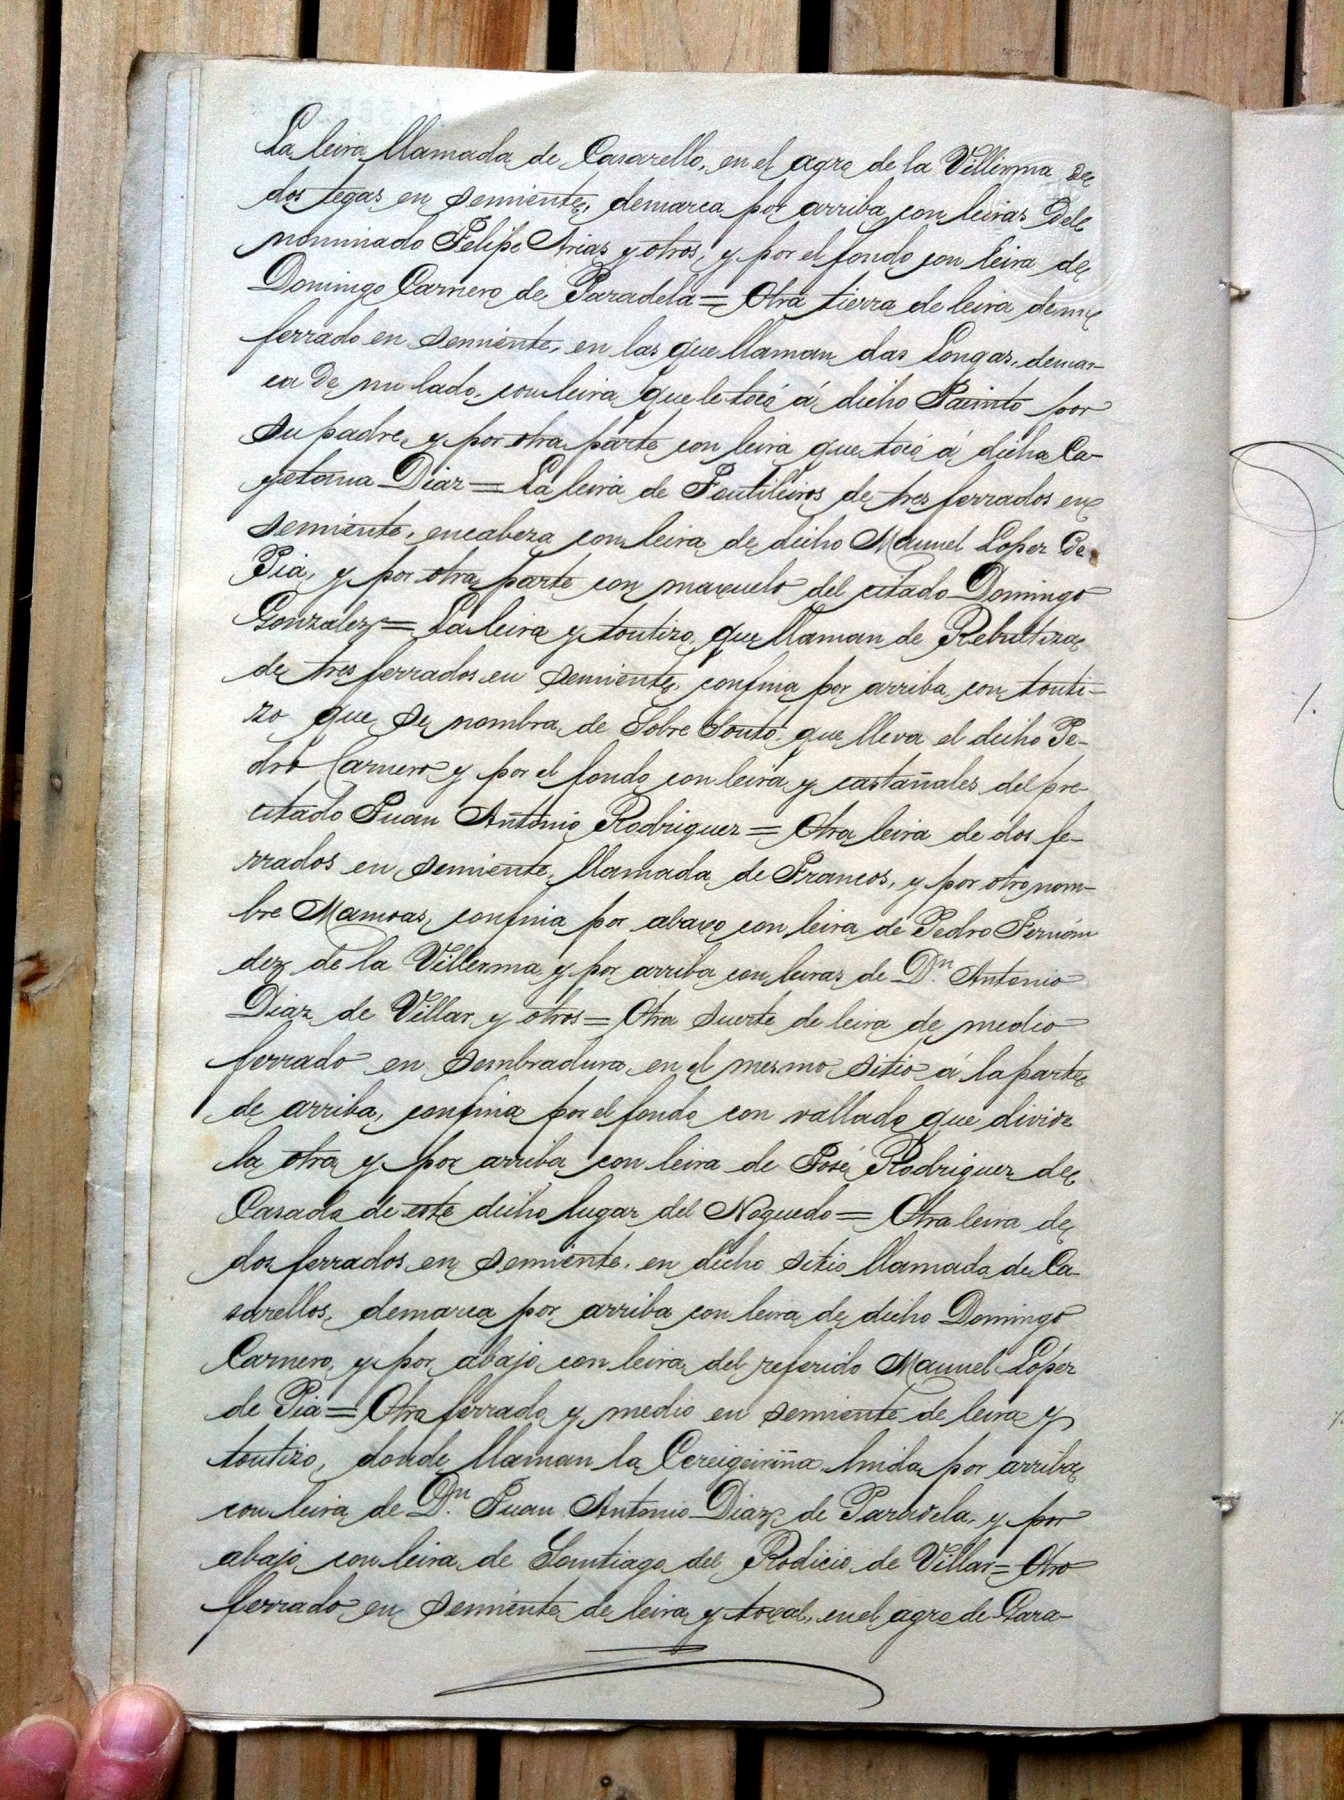 La leira llamada de Casarello, en el agro de la Villerma de
dos tegas en semiente, demarca por arriba con leiras del
nominado Felipe Arias y otros, y por el fondo con leira de
Domingo Carnero de Paradela = Otra tierra de leira de un
ferrado en semiente, en las que llaman das Longas, demar-
ca de un lado, con leira que le tocó á dicho por
su padre, y por otra parte con leira que tocó á dicha Ca-
yetana Diaz = La leira de Fentileiros de tres ferrados en
semiente, encabeza con leira de dicho Manuel Lopez de
Pia, y por otra parte con maxuelo del citado Domingo
Gonzalez = La leira y toutizo que llaman de
de tres ferrados en semiente, confina por arriba con touti-
zo que se nombra de Sobre Souto que lleva el dicho Pe-
dro Carnero y por el fondo con leira y castañales del pre-
citado Juan Antonio Rodriguez = Otra leira de dos fe-
rrados en semiente, llamada de Francos, y por otro nom-
bre Mamoas, confina por abaxo con leira de Pedro Fernán
dez de la Villerma y por arriba con leiras de Dn. Antonio
Diaz de Villar y otros = Otra suerte de leira de medio
ferrado en sembradura en el mesmo sitio á la parte
de arriba, confina por el fondo con vallado que divide
la otra y por arriba con leira de José Rodriguez de
Casada de este dicho lugar del Noguedo = Otra leira de
dos ferrados en semiente, en dicho sitio llamada de Ca-
sarellos, demarca por arriba con leira de dicho Domingo
Carnero, y por abajo con leira del referido Manuel López
de Pia = Otro ferrado y medio en semiente de leira y
toutizo, donde llaman la Cereigeiriña linda por arriba
con leira de Dn. Juan Antonio Diaz de Paradela, y por
abajo con leira de Santiago del Rodicio de Villar = Otro
ferrado en semiente de leira y toxal, en el agro de Gara-